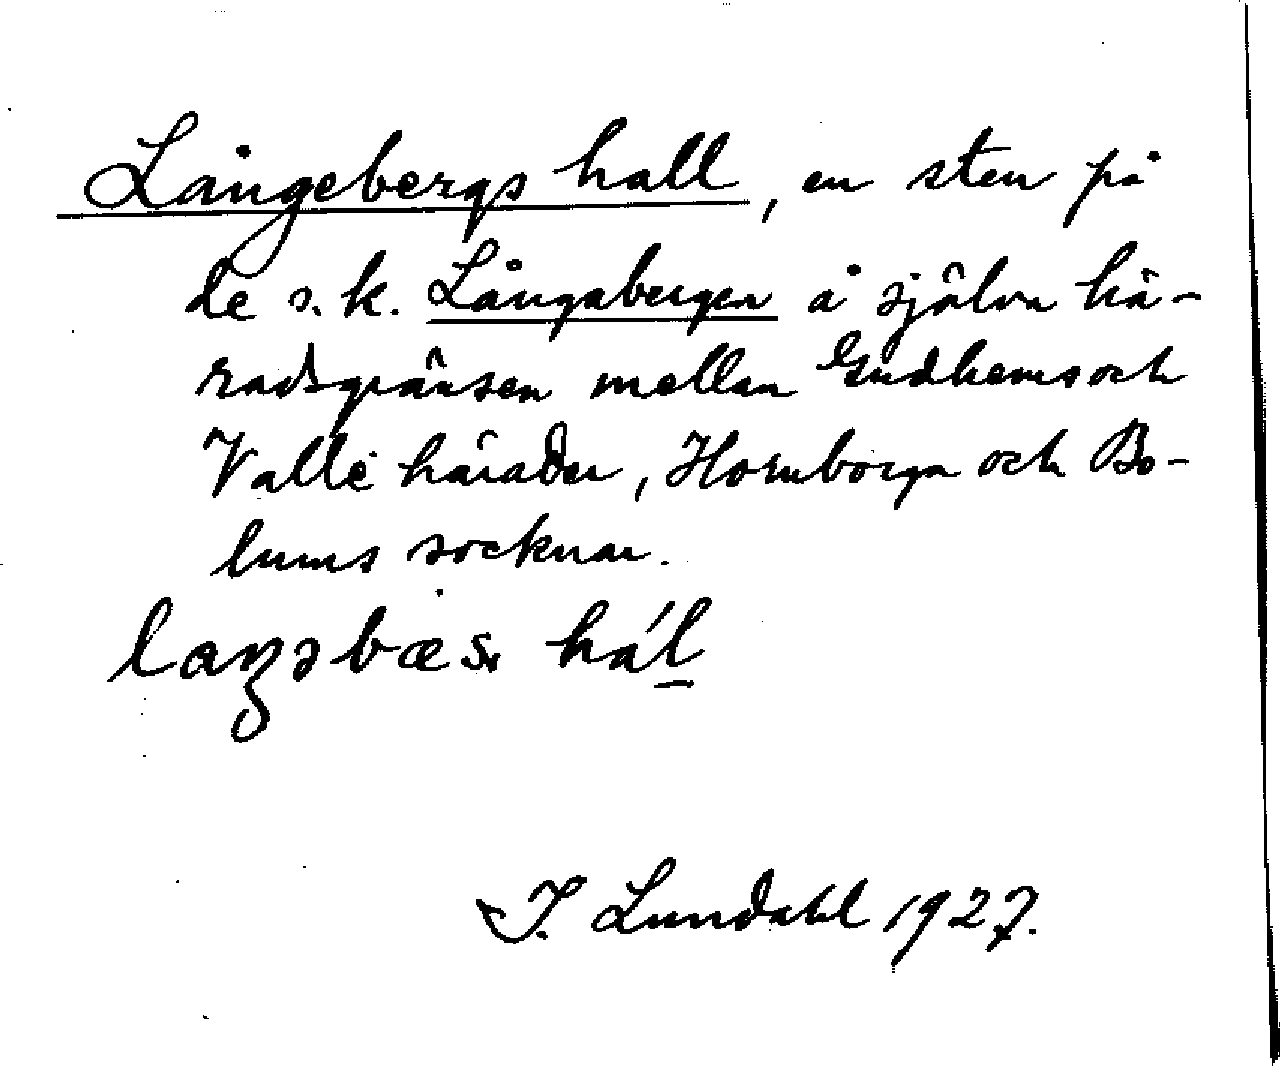 Långebergs hall, en sten på
de s.k. Långabergen å själva hä-
radsgränsen mellan Gudhems och
Valle härader, Hornborga och Bo-
lums socknar.
I. Lundahl 1927.